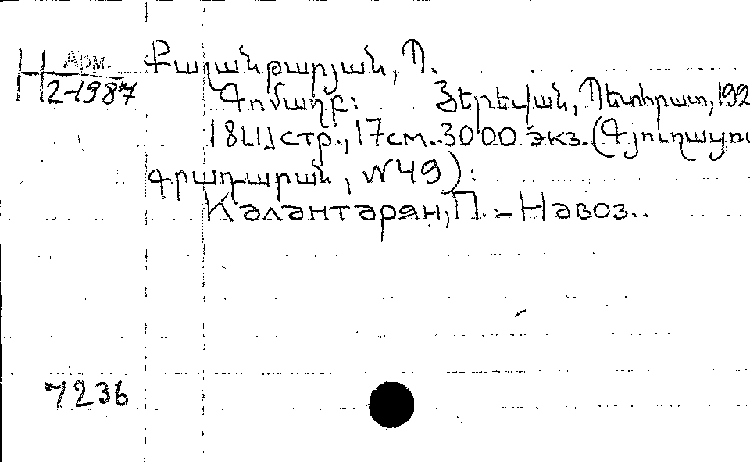 Арм.
Н 2-1987
Քալանթարյան, Պ.
Գոմաղբ: Յերեվան, Պետհրատ, 192
18 стр., 17см. 3000 экз. (Գյուղատն
գրադարան, №49):
Калантарян, П. - Навоз..
7236